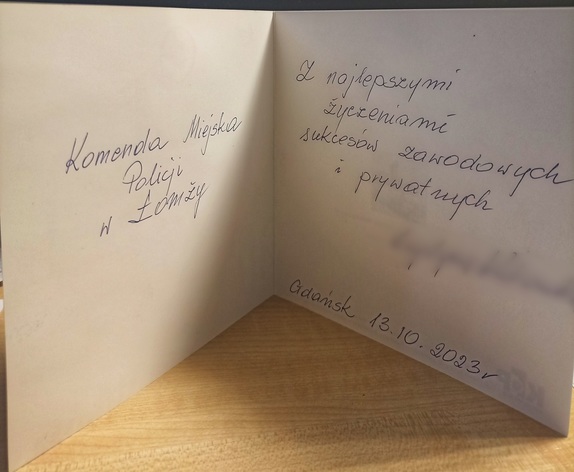 Komenda Miejska
Policji
w Łomży
Z najlepszymi
życzeniami
sukcesów zawodowych
i prywatnych
Gdańsk 13.10.2023r